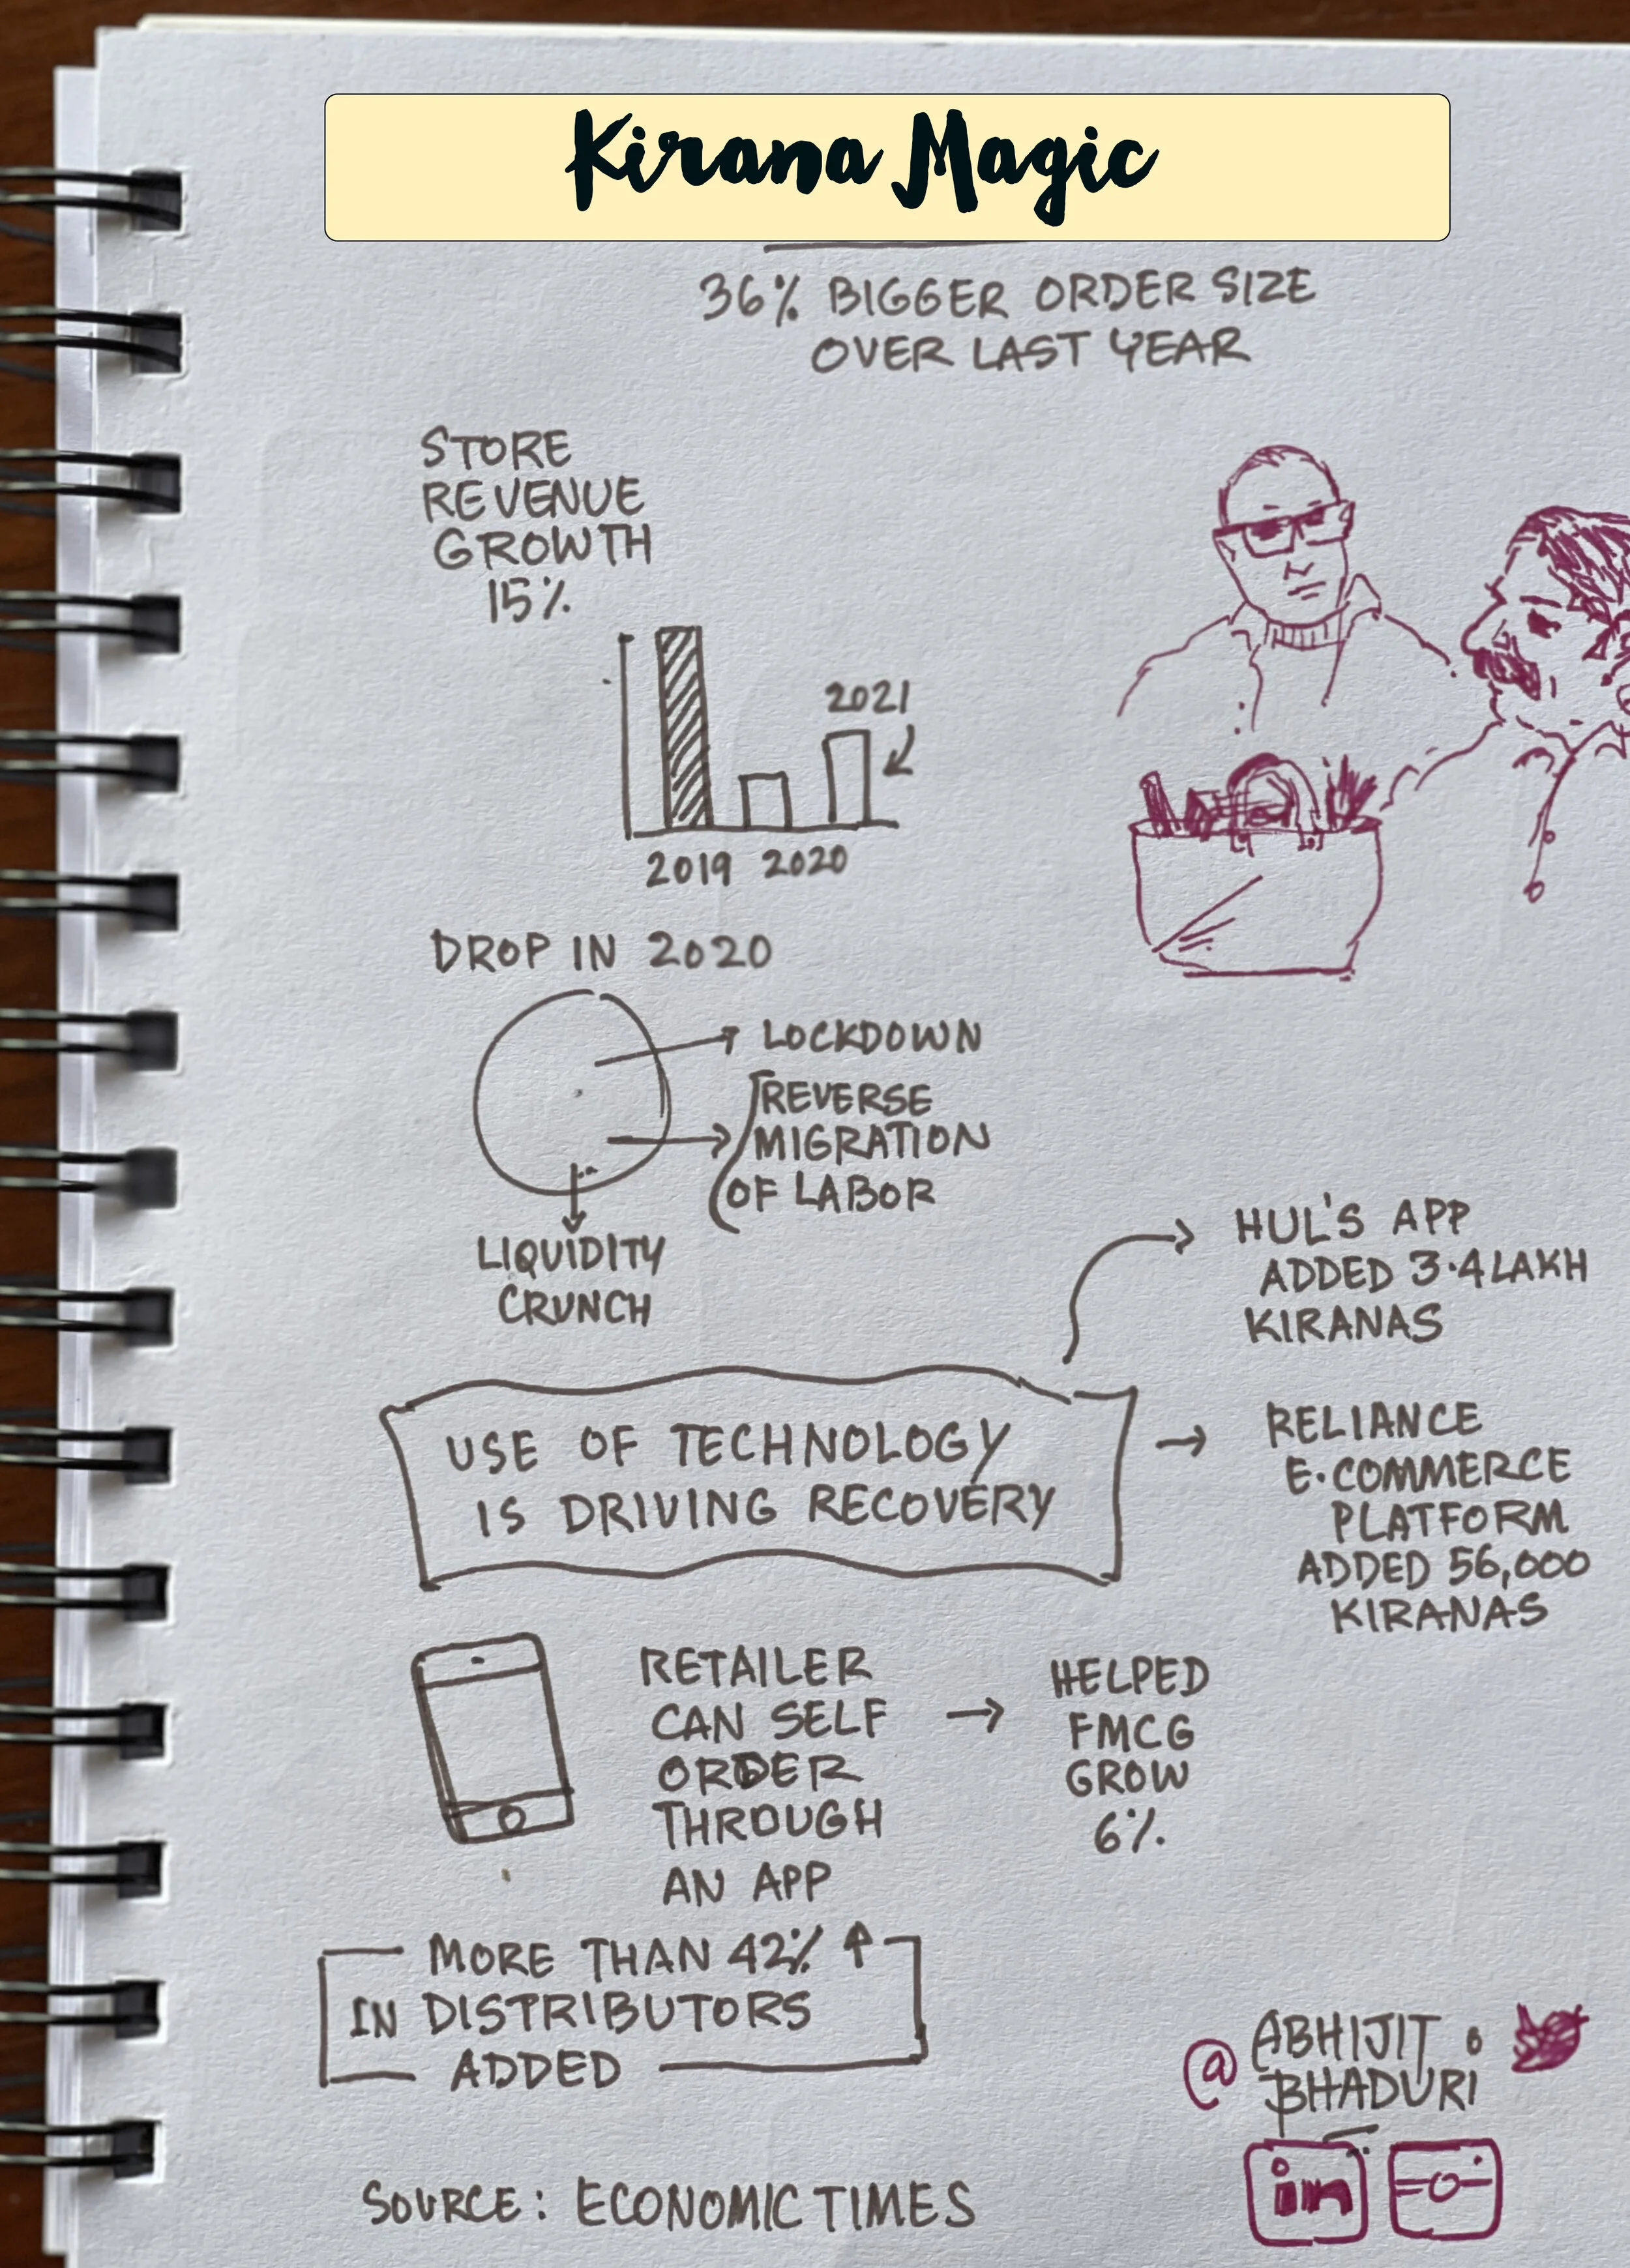 Kirana Magic
36% BIGGER ORDER SIZE
OVER LAST YEAR
STORE
REVENUE
GROWTH
15%
2021
2019 2020
DROP IN 2020
LOCKDOWN
REVERSE
MIGRATION
OF LABOR
LIQUIDITY
CRUNCH
HUL'S APP
ADDED 3.4 LAKH
KIRANAS
USE OF TECHNOLOGY
IS DRIVING RECOVERY
RELIANCE
E.COMMERCE
PLATFORM
ADDED 56,000
KIRANAS
RETAILER
CAN SELF
ORDER
THROUGH
AN APP
HELPED
FMCG
GROW
6%
MORE THAN 42% ↑
IN DISTRIBUTORS
ADDED
@ ABHIJIT
BHADURI
in
SOURCE: ECONOMIC TIMES